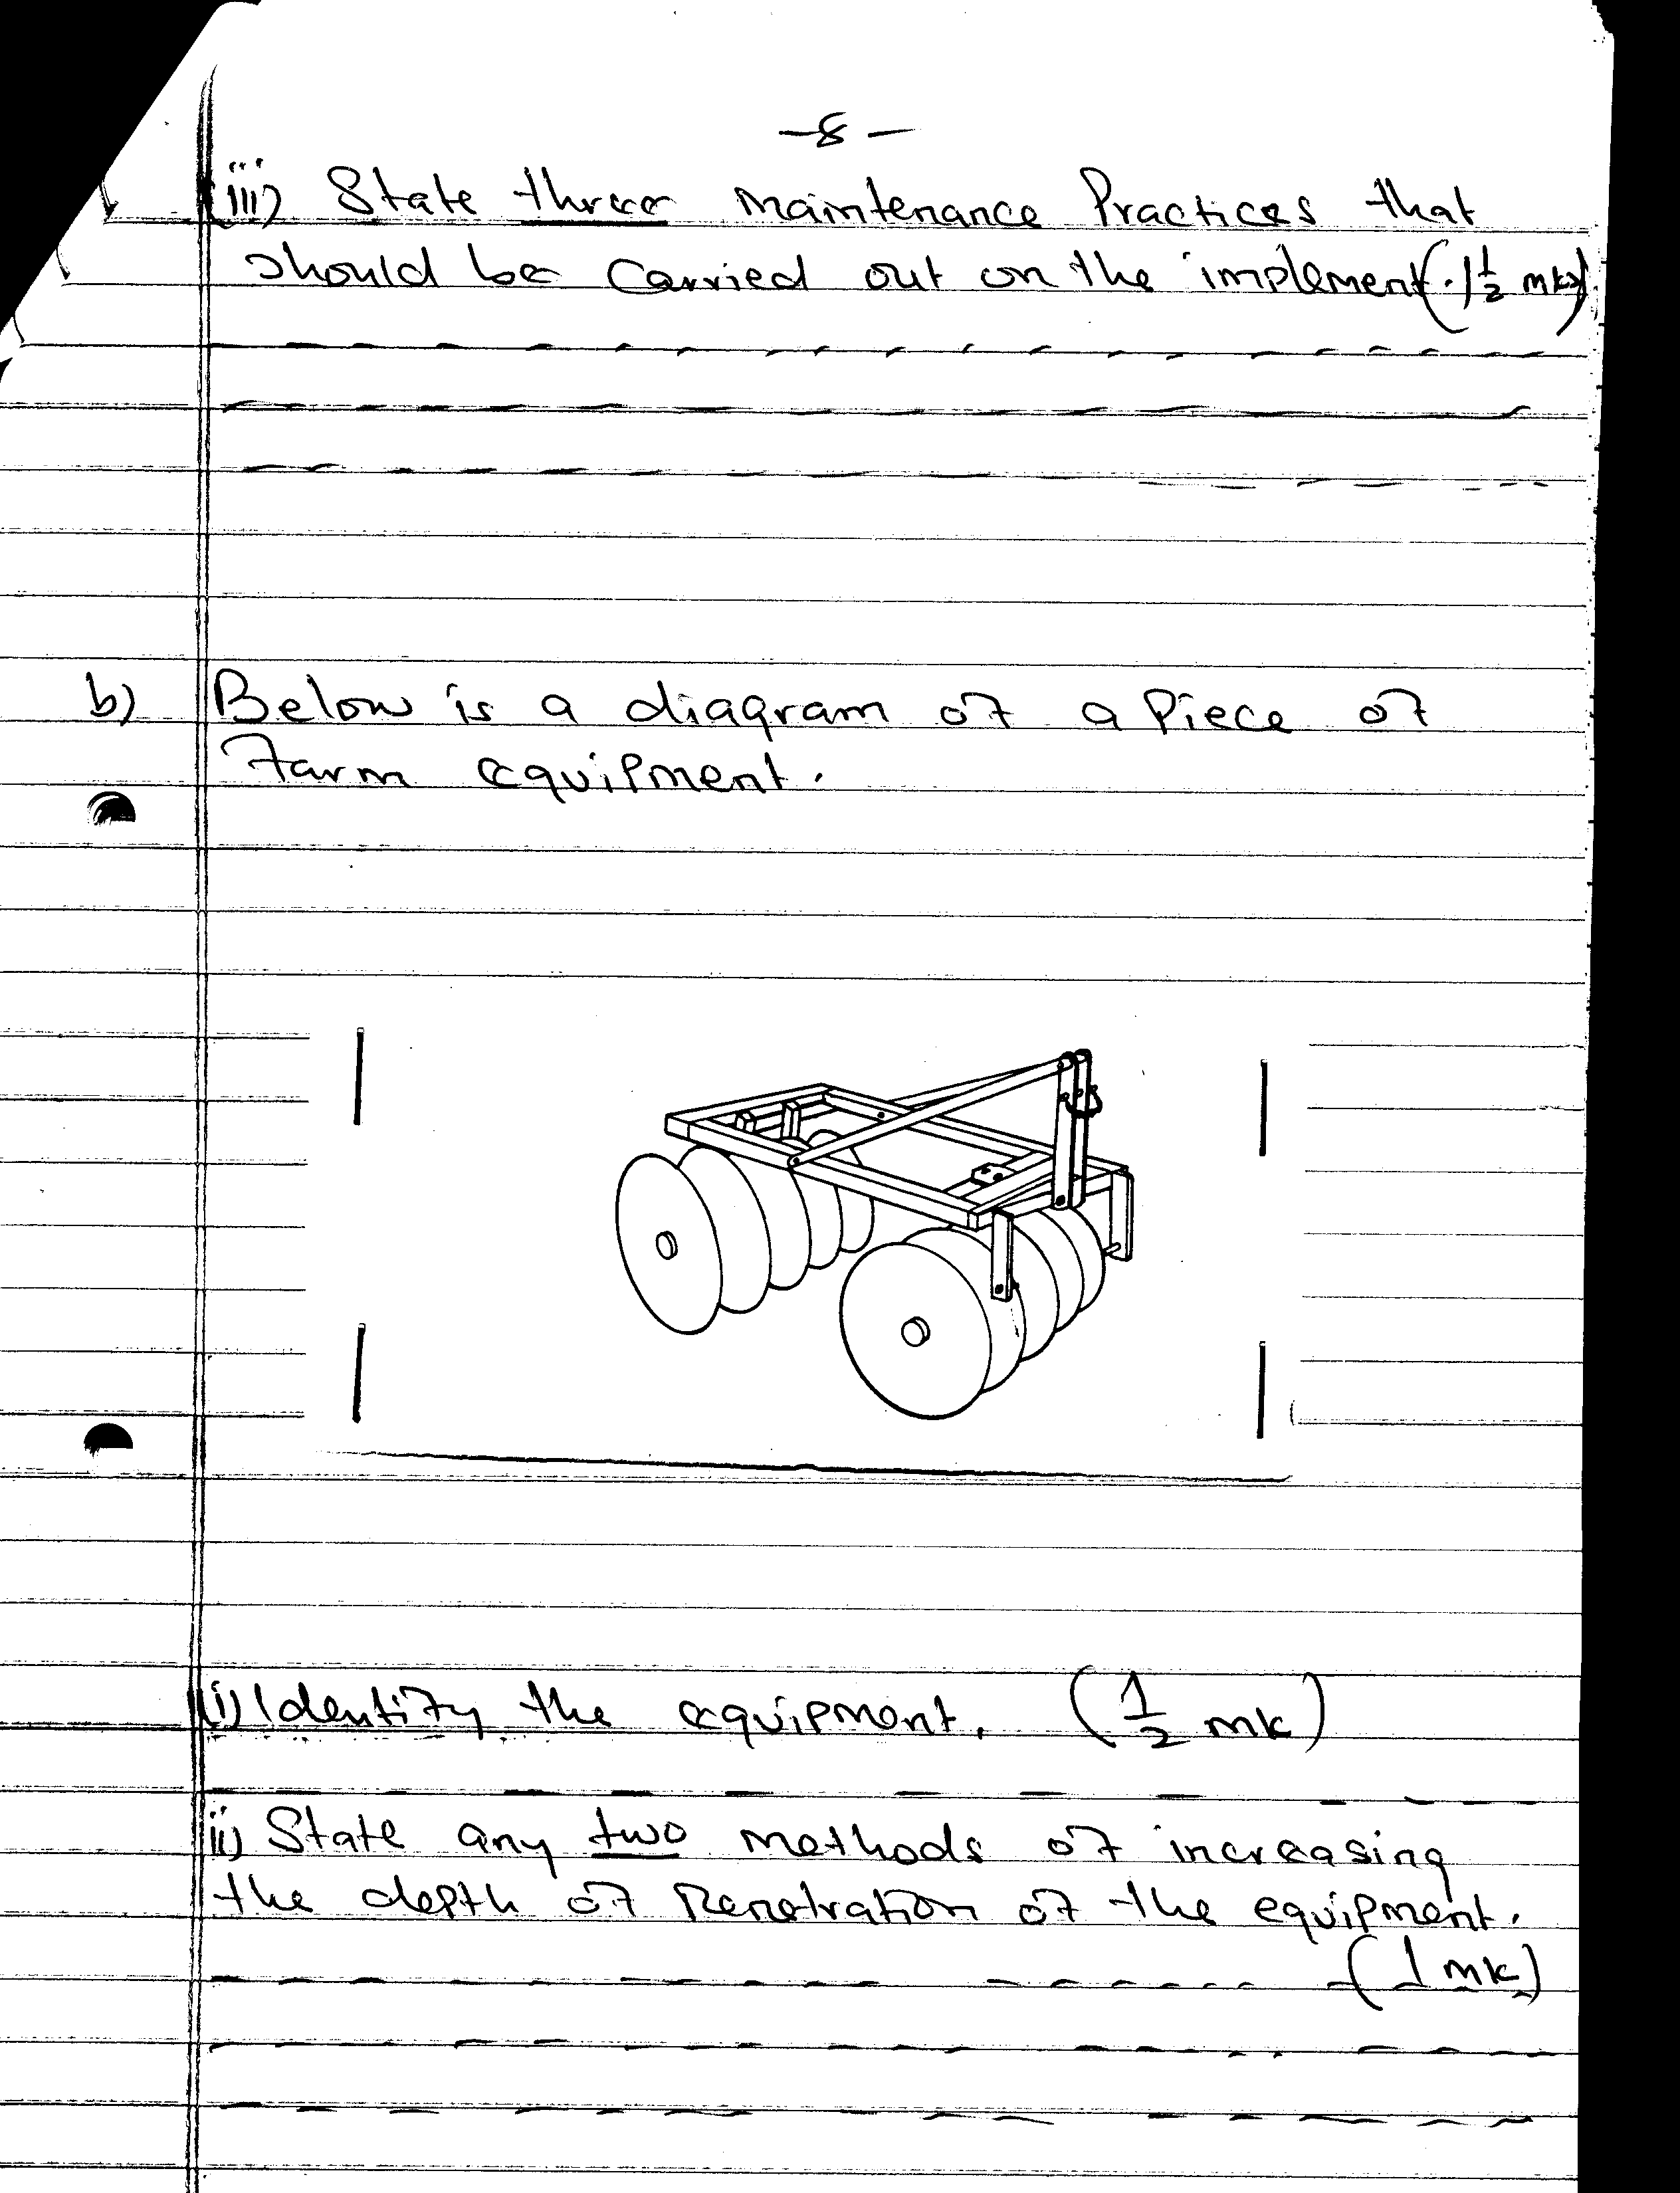 -8-
(iii) State three maintenance Practices that
should be carried out on the implement (1½ mks)
b) Below is a diagram of a Piece of
farm equipment.
(i) Identify the equipment. (1/2 mk)
ii) State any two methods of increasing
the depth of Penetration of the equipment.
(1 mk)